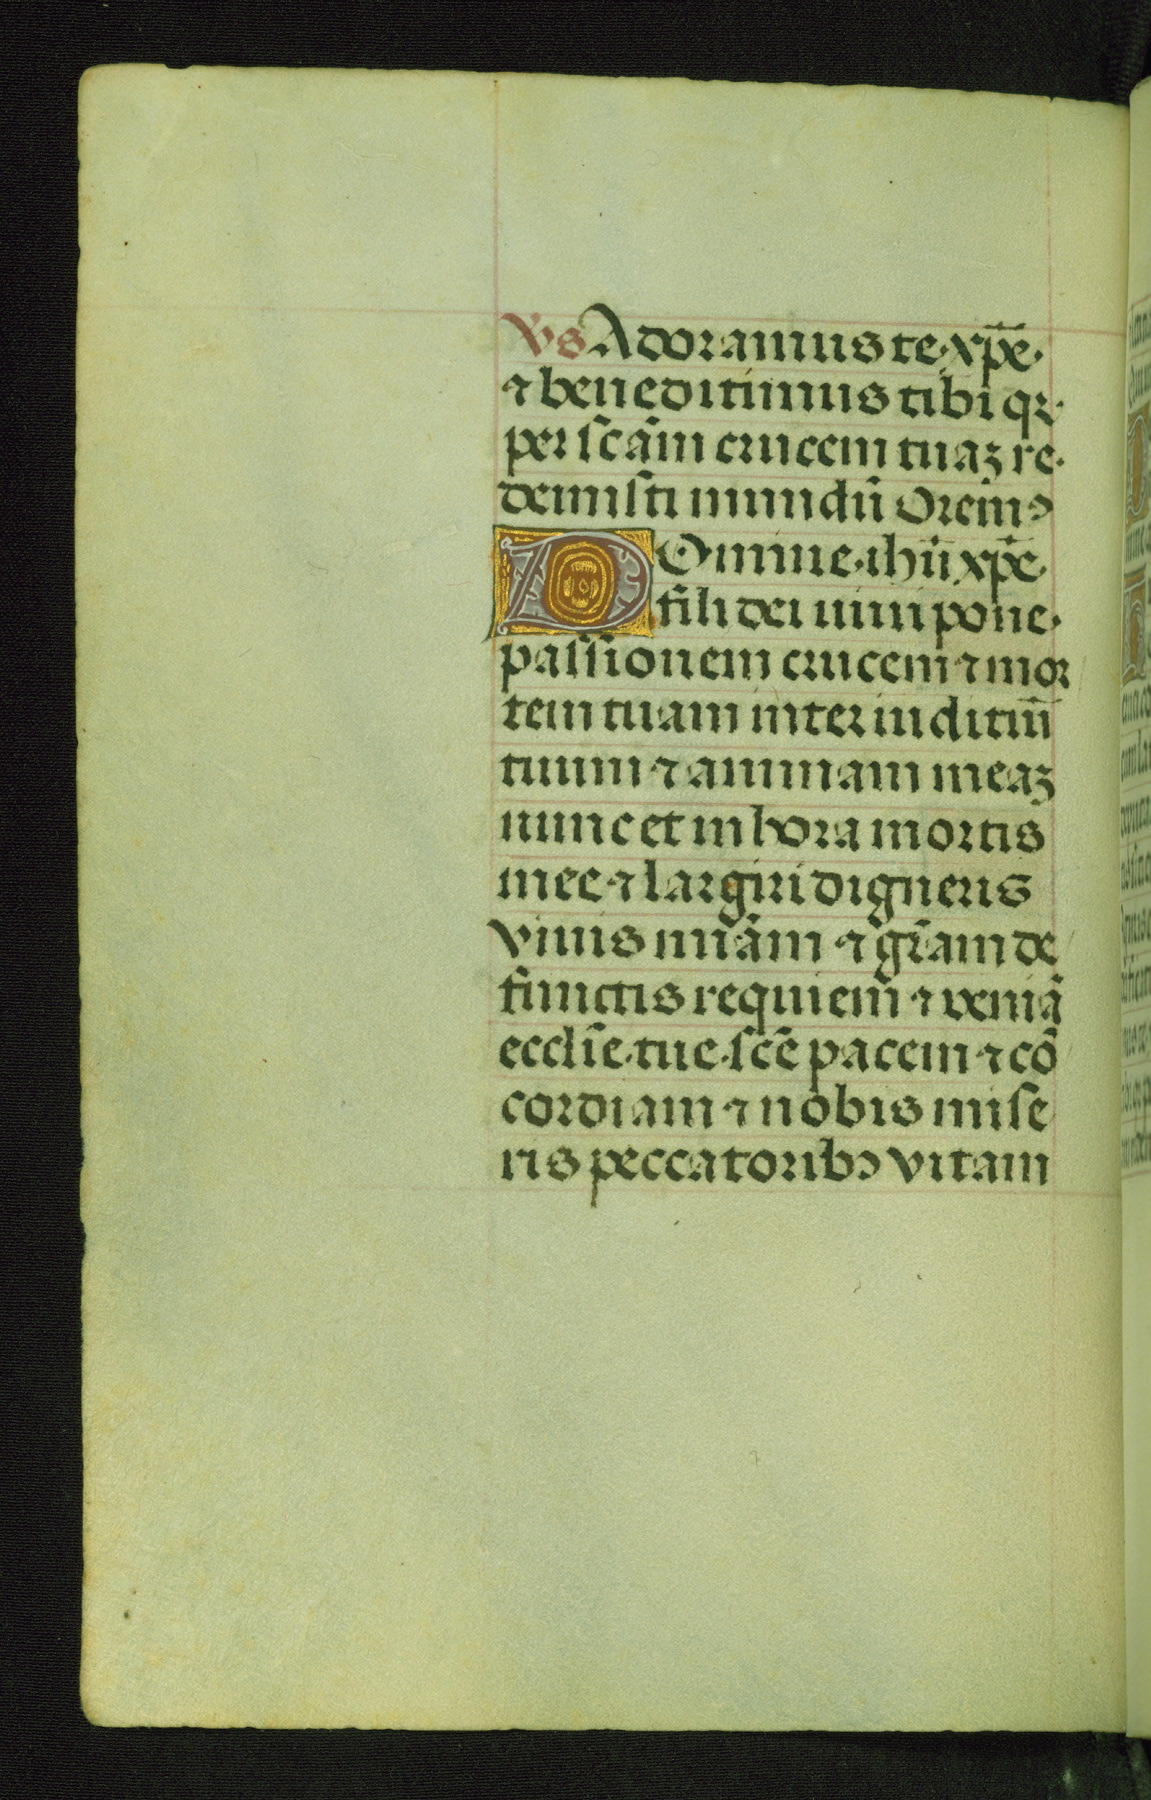 Vs Adoramus te xp̄e.
⁊ beneditimus tibi qꝛ.
per scām crucem tuaꝫ re.
demisti mundū Oremꝰ
DOmine ihū xp̄e.
fili dei uiui pone.
passionem crucem ⁊ mor
tem tuam inter iuditiū
tuum ⁊ animam meaꝫ
nunc et in hora mortis
mee ⁊ largiri digneris
viuis miām ⁊ grām de
functis requiem ⁊ veniā
ecclīe tue scē pacem ⁊ cō
cordiam ⁊ nobis mise
ris peccatoribꝰ vitam